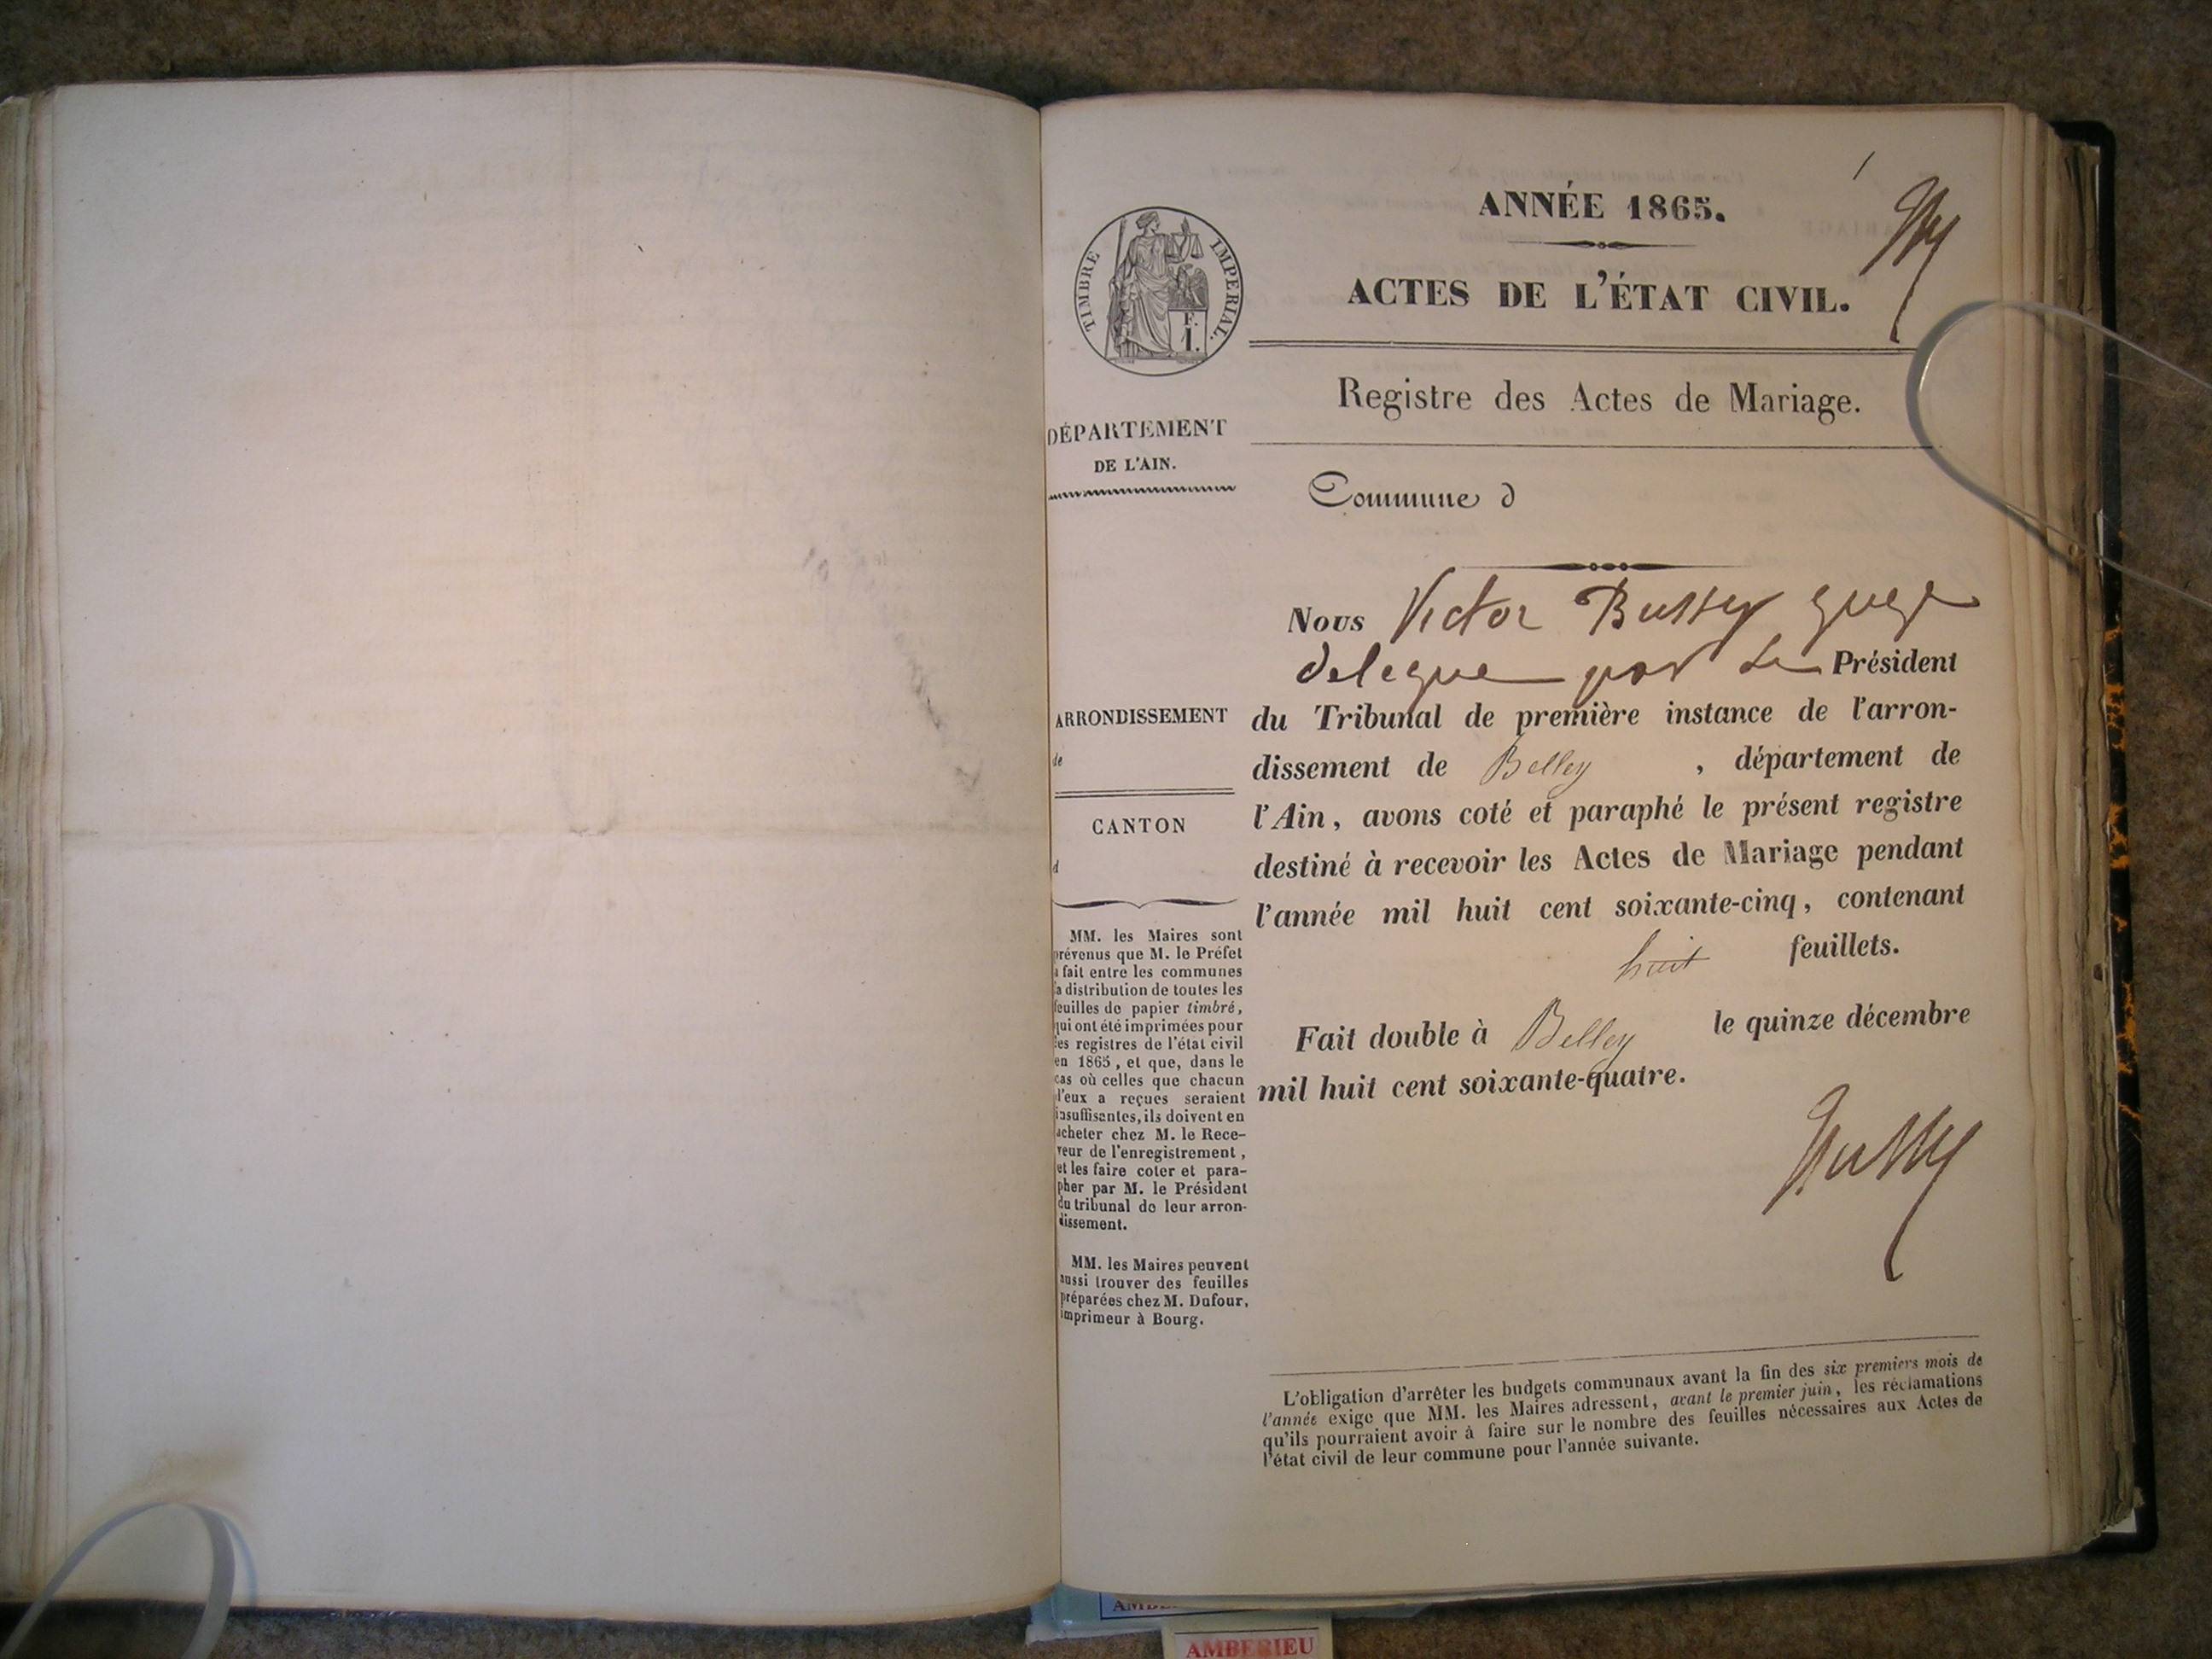 1
ANNÉE 1865.
ACTES DE L'ÉTAT CIVIL.
TIMBRE IMPERIAL.
F.
1.
Registre des Actes de Mariage.
DÉPARTEMENT
DE L'AIN.
Commune d
Nous Victor Bussy guge
delegue par le Président
du Tribunal de première instance de l'arron-
dissement de Belley , département de
l'Ain, avons coté et paraphé le présent registre
destiné à recevoir les Actes de Mariage pendant
l'année mil huit cent soixante-cinq, contenant
huit feuillets.
Fait double à Belley le quinze décembre
mil huit cent soixante-quatre.
Bussy
ARRONDISSEMENT
de
CANTON
d
MM. les Maires sont
prévenus que M. le Préfet
a fait entre les communes
la distribution de toutes les
feuilles de papier timbré,
qui ont été imprimées pour
les registres de l'état civil
en 1865, et que, dans le
cas où celles que chacun
d'eux a reçues seraient
insuffisantes, ils doivent en
acheter chez M. le Rece-
veur de l'enregistrement,
et les faire coter et para-
pher par M. le Président
du tribunal de leur arron-
dissement.
MM. les Maires peuvent
aussi trouver des feuilles
préparées chez M. Dufour,
imprimeur à Bourg.
L'obligation d'arrêter les budgets communaux avant la fin des six premiers mois de
l'année exige que MM. les Maires adressent, avant le premier juin, les réclamations
qu'ils pourraient avoir à faire sur le nombre des feuilles nécessaires aux Actes de
l'état civil de leur commune pour l'année suivante.
AMBERIEU